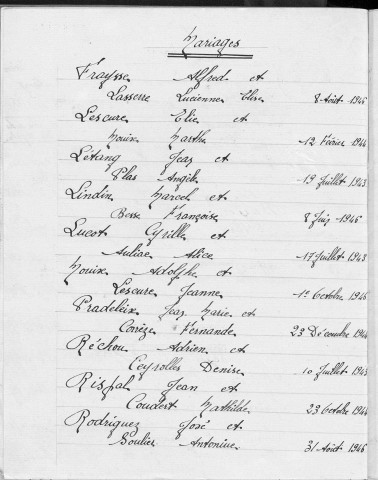 Mariages
Fraysse Alfred et
Lasserre Lucienne Elise 8 Août 1946
Lescure Elie et
Mouix Marthe 12 Février 1944
Létang Jean et
Plas Angèle 19 Juillet 1943
Lindin Marcel et
Besse Françoise 8 Juin 1946
Lucot Cyrille et
Auliac Alice 17 Juillet 1943
Mouix Adolphe et
Lescure Jeanne 1er Octobre 1946
Pradeleix Jean Marie et
Corrèze Fernande 23 Décembre 1944
Réchou Adrien et
Ceyrolles Denise 10 Juillet 1943
Rispal Jean et
Coudert Mathilde 23 Octobre 1944
Rodriguez José et
Soulier Antonine 31 Août 1946